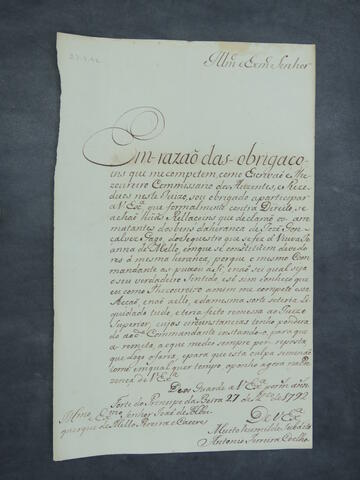 27.3.92
Illmo e Exmo Senhor
Em razaõ das obrigaço-
ens que me competem, como Escrivaõ e The-
zoureiro Commissario dos Auzentes, e Rezi-
duos neste Juizo, sou obrigado a participar
a V Exa. que formalmente contra Direito, se
achaõ as Rellaçoens que declaraõ os ar-
rematantes dos bens da herança de Joze Gon-
calves Gago, do Registro que se fez de Viuva Jo-
anna de Mello, em que se constituem devedo-
res á mesma herança, porque o mesmo Com-
mandante as puxou a Si, e naõ sei qual seja
o seu verdadeiro Sentido; e só sim Conheço que
eu como Thezoureiro a mim me compete essa
Acçaõ, e naõ a elle, e da mesma sorte se teria Li-
quidado tudo, e teria feito remessa ao Juizo
Superior, cujas circunstancias tenho pondera-
do ao do. Commandante instando-o, para que
a remeta, a que me diz sempre por reposta,
que logo o faria, e para que esta culpa se me naõ
tome em qualquer tempo a ponho agora na Pre-
zença de V Exa.
Deos Guarde a V Exa. por ms. anns.
Forte do Principe da Beira 27 de Mço. de 1792
Illmo. e Exmo. Senhor Joaõ de Albu-
querque de Mello Pereira e Caceres
De V Exa.
Muito humilde Subdito
Antonio Ferreira Coelho